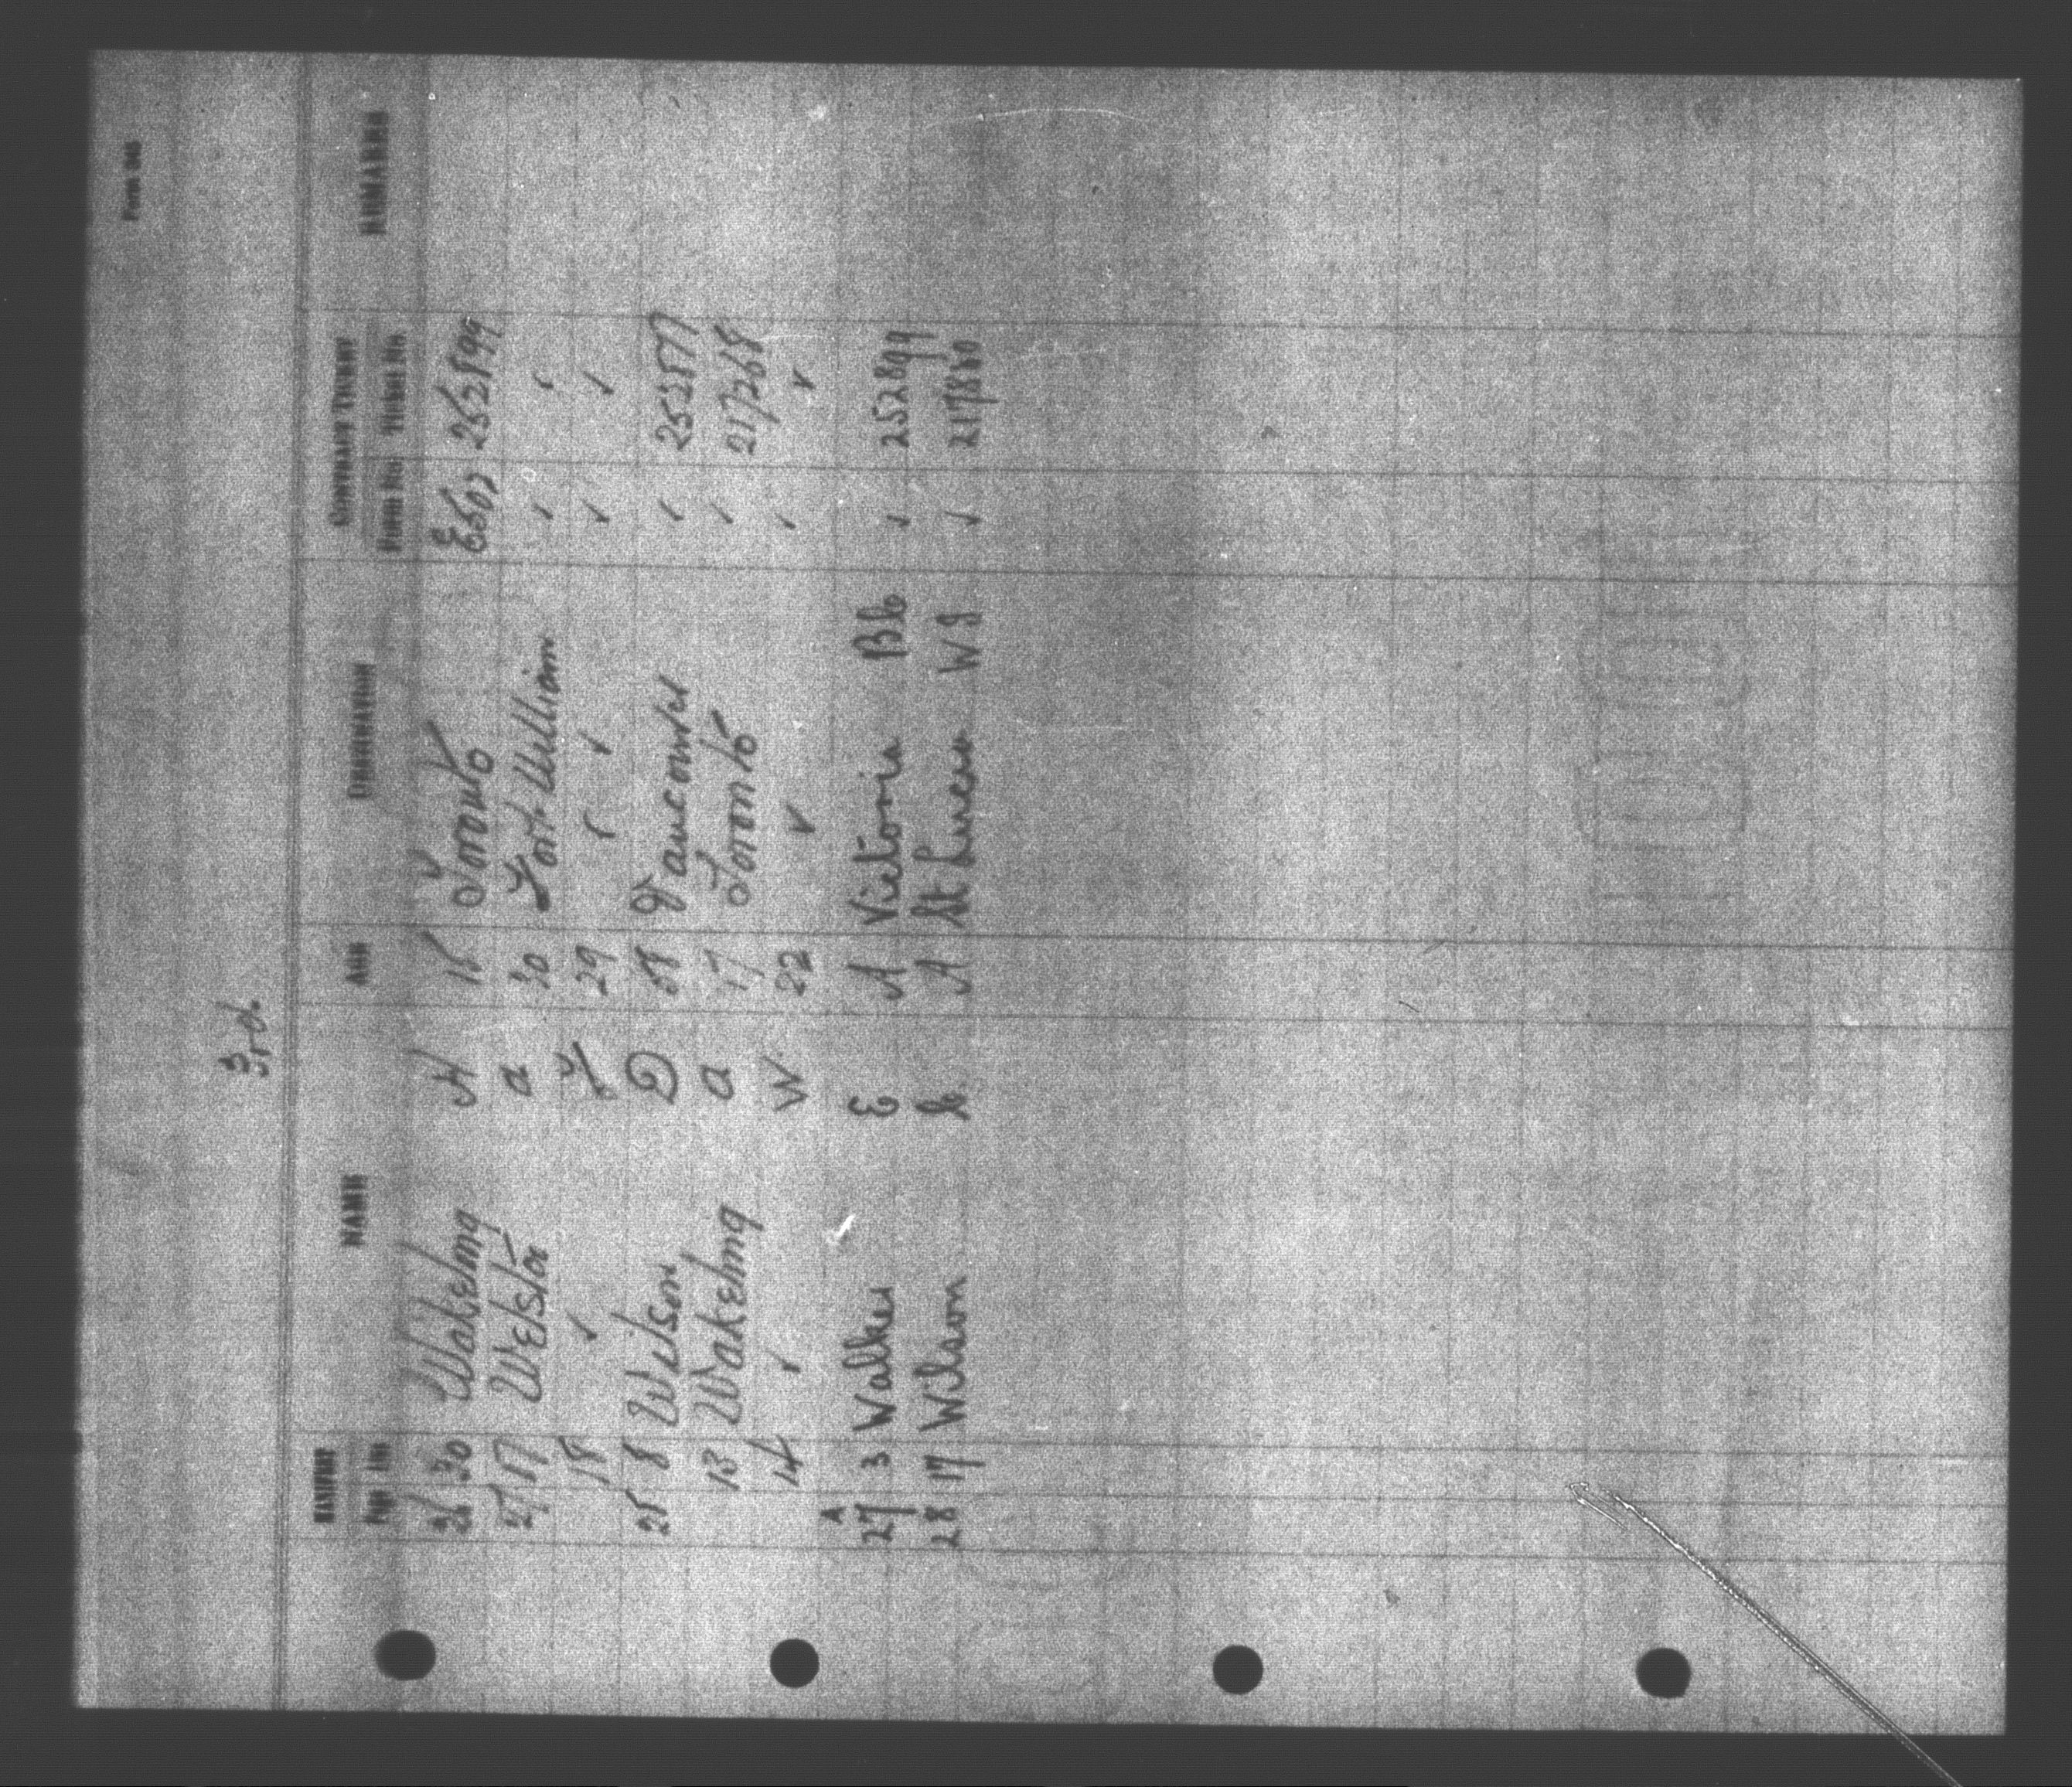 Form 045
3rd.
MANIFEST NAME AGE DESTINATION CONTRACT TICKET REMARKS
Page Line Form No. Ticket No.
26 30 Wakeling H 15 Toronto E502 252899
27 17 Webster a 30 Fort William ✓ ✓
18 ✓ F 29 ✓ ✓ ✓ ✓
25 8 Wilson D 58 Vancouver ✓ 252577
13 Wakeling a 17 Toronto ✓ 217268
14 ✓ W 22 ✓ ✓ ✓
A
27 3 Walker E A Victoria BC ✓ 252899
28 17 Wilson C A St Lucear WI ✓ 217880